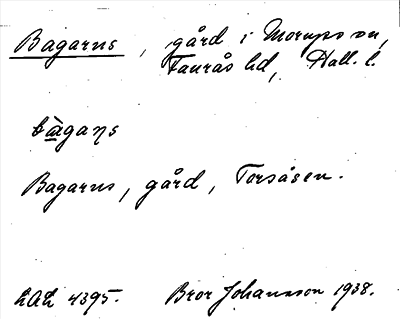 Bagarns, gård i Morups sn,
Faurås hd, Hall. l.
bàgaɳs
Bagarns, gård, Torsåsen.
LAL 4395. Bror Johansson 1938.